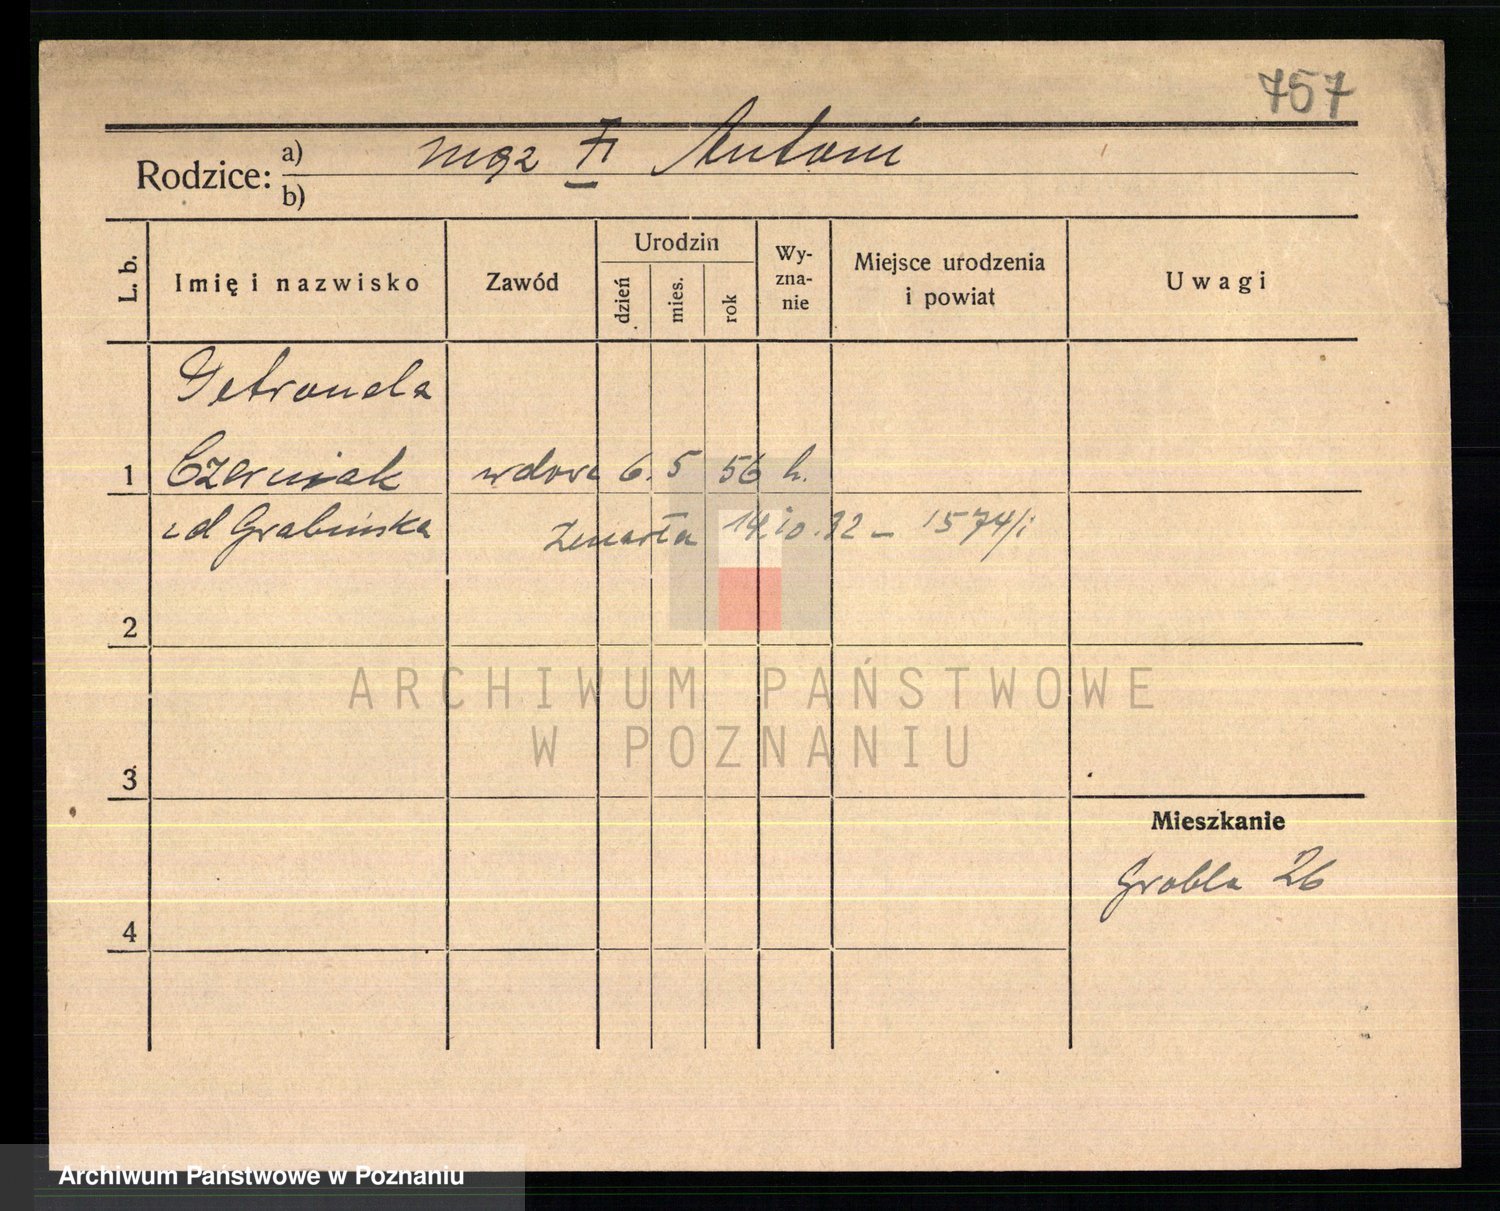 757
Rodzice: a) mąż Antoni
b)
L. b. Imię i nazwisko Zawód Urodzin dzień mies. rok Wy-zna-nie Miejsce urodzenia i powiat Uwagi
Petronela
1 Czerniak wdowa 6. 5 56 k.
zd Grabińska Zmarła 14.10.32 – 1574/i
2
3
Mieszkanie
Grobla 26
4
ARCHIWUM PAŃSTWOWE
W POZNANIU
Archiwum Państwowe w Poznaniu